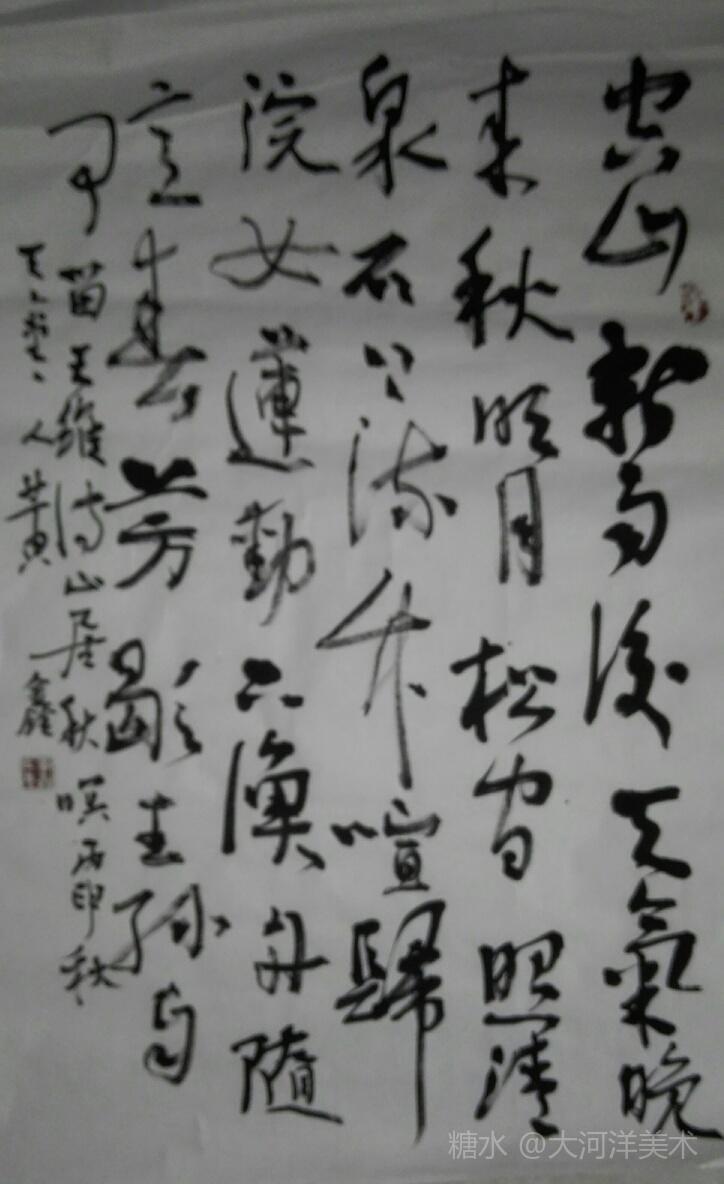 空山新雨後天氣晚
来秋明月松间照清
泉石上流竹喧歸
浣女蓮動下漁舟隨
意春芳歇王孫自
可留王維诗山居秋暝丙申秋
人黄鑫
糖水 @大河洋美术